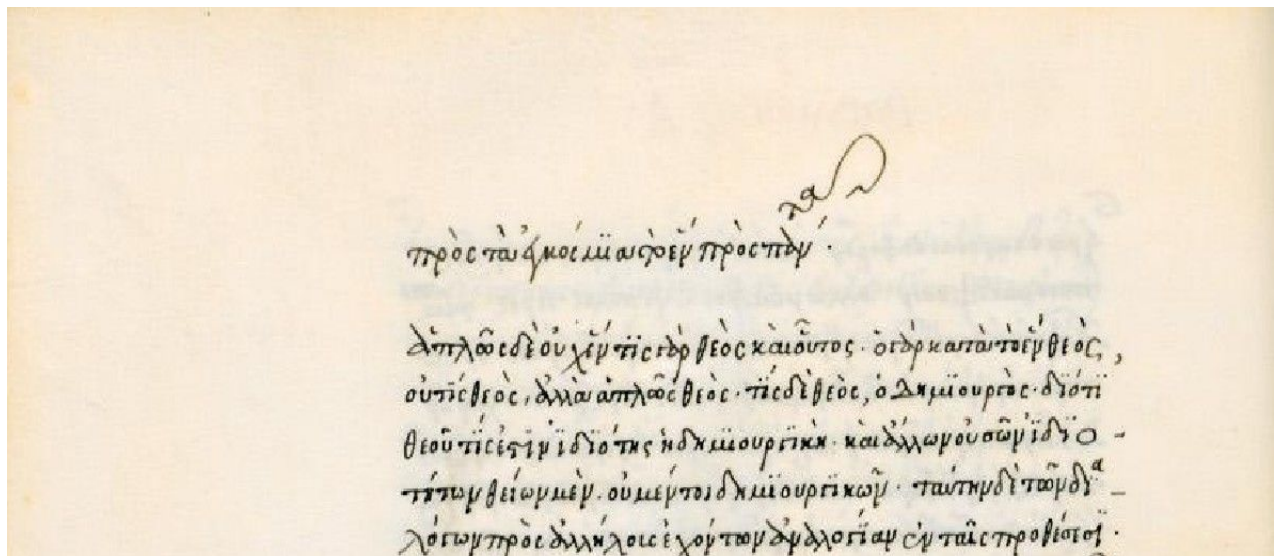 ἁπλῶς δὲ οὐχ ἕν· τὶς γὰρ θεὸς καὶ οὗτος· ὁ γὰρ κατὰ τὸ ἓν θεὸς,
οὐ τὶς θεὸς, ἀλλὰ ἁπλῶς θεὸς· τὶς δὲ θεὸς, ὁ δημιουργὸς· διότι
θεοῦ τίς ἐστιν ἰδιότης ἡ δημιουργικὴ· καὶ ἄλλων οὐσῶν ἰδιο-
τήτων θείων μὲν· οὐ μέντοι δημιουργικῶν· ταύτην δὲ τῶν δια-
λόγων πρὸς ἀλλήλους ἐχόντων ἀναλογίαν ἐν ταῖς προθέσεσι·